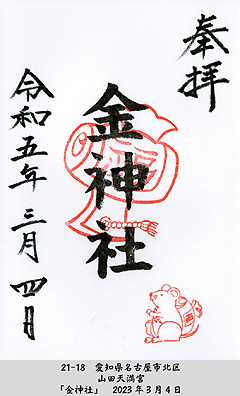 奉拝
金神社
令和五年 三月 四日
21-18 愛知県名古屋市北区
山田天満宮
「金神社」 2023年3月4日